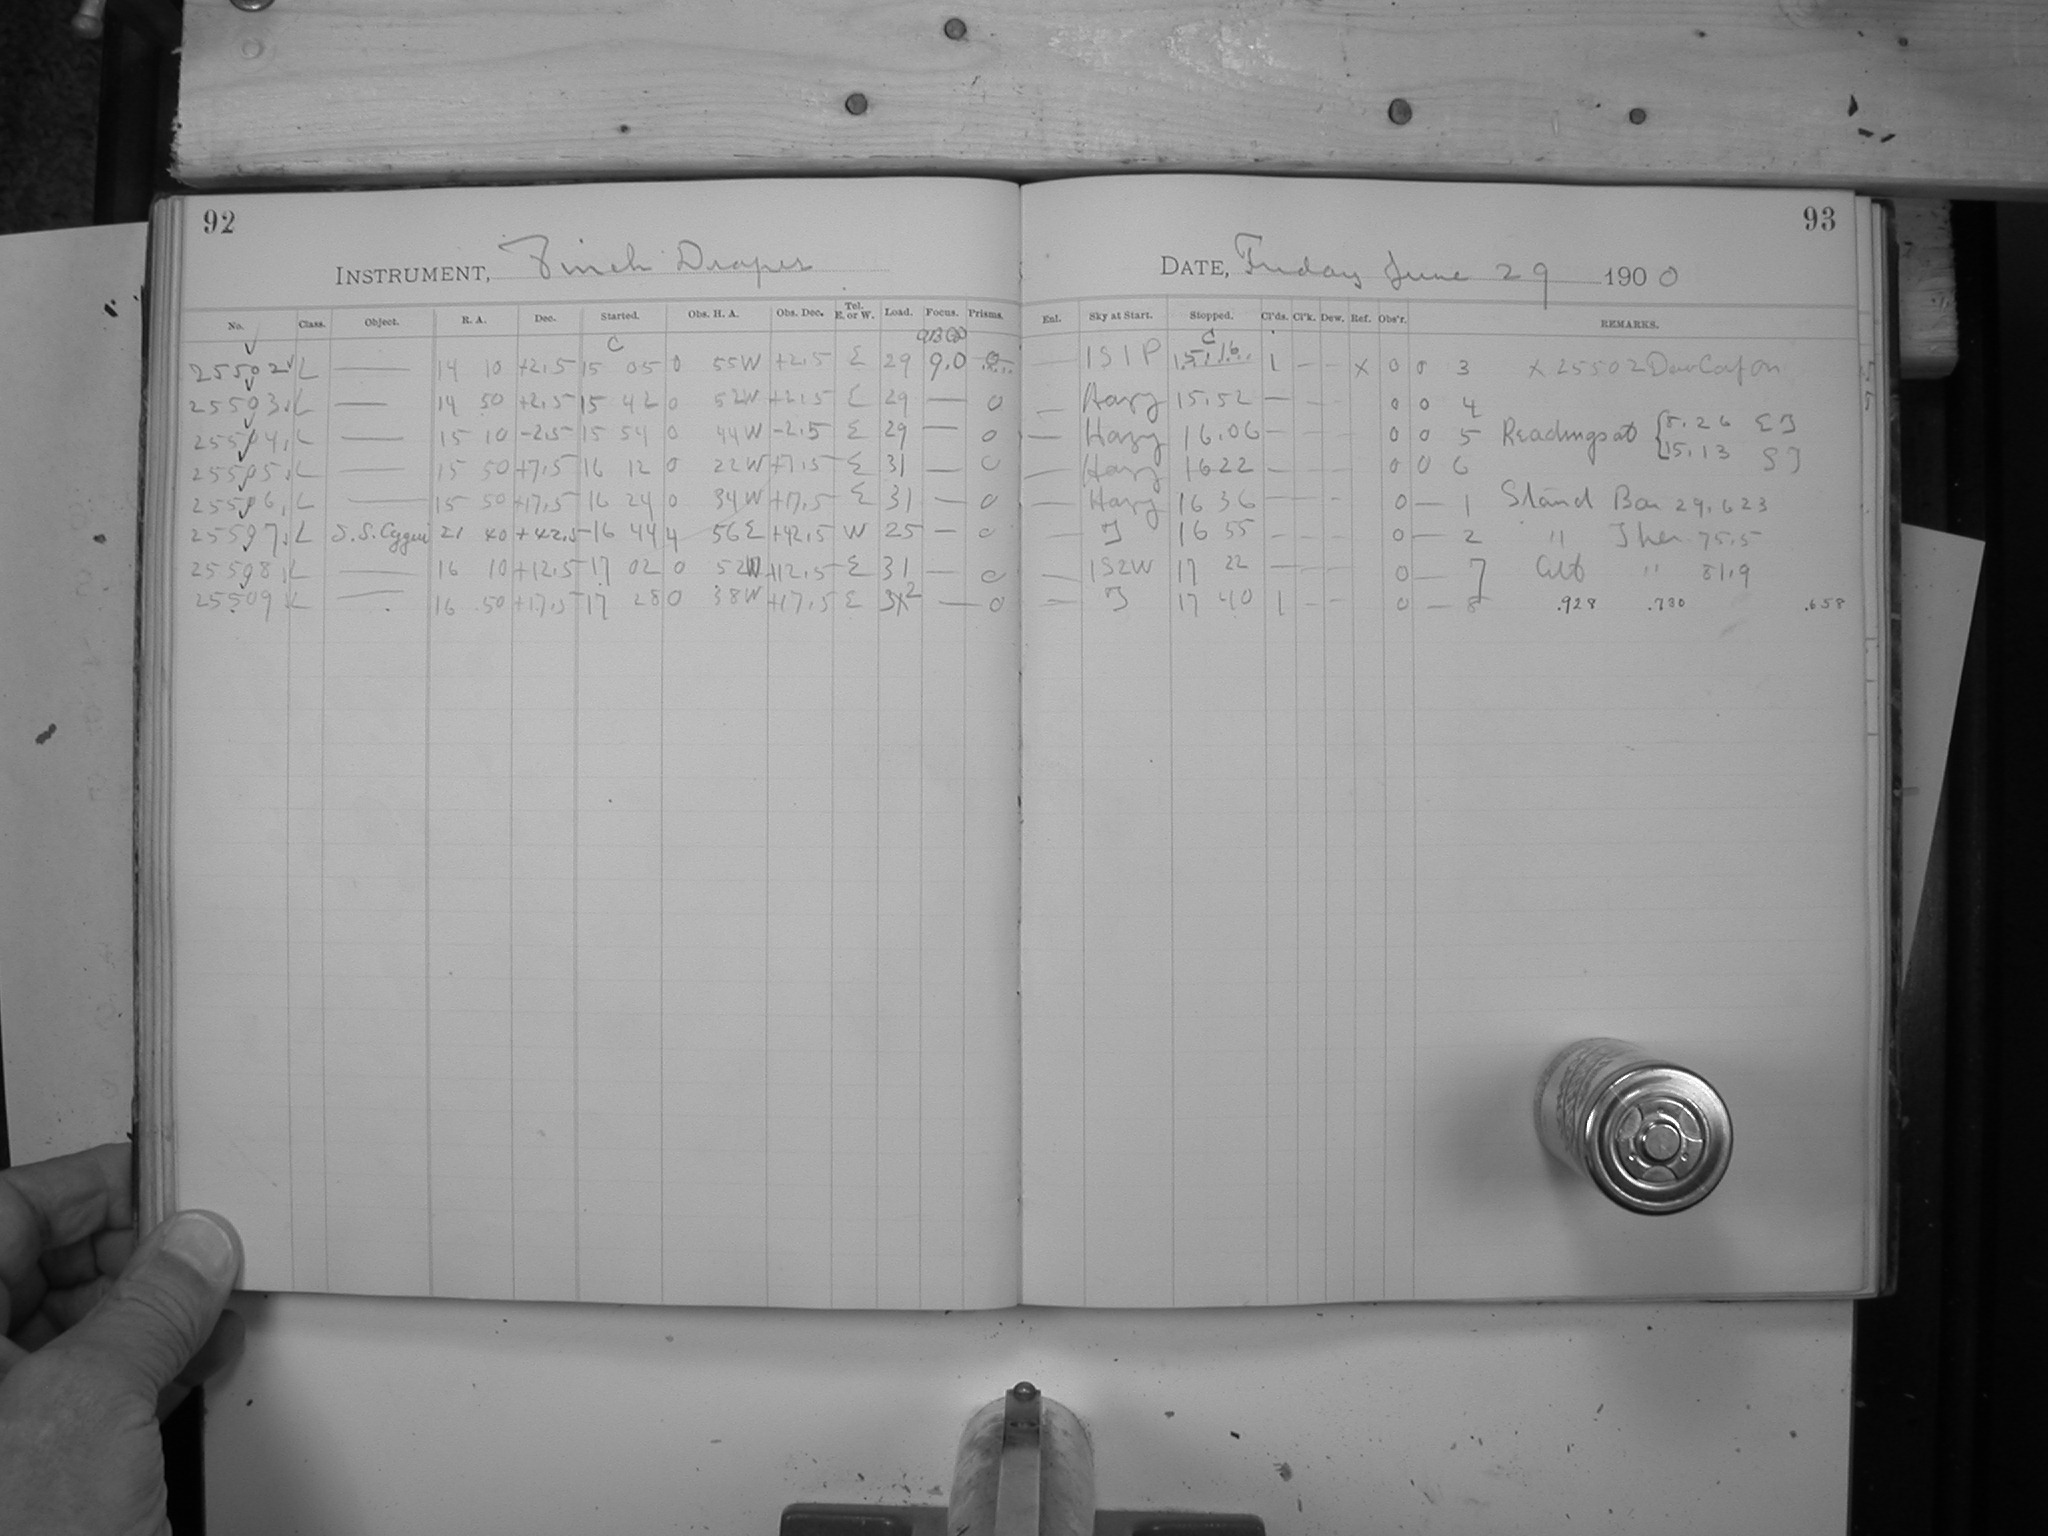 92
INSTRUMENT, 8 inch Draper
No. Class. Object. R. A. Dec. Started. Obs. H. A. Obs. Dec. Tel. E. or W. Load. Focus. Prisms.
C
25502 L — 14 10 +2.5 15 05 0 55W +2.5 E 29 9.0 0
25503 L — 14 50 +2.5 15 42 0 52W +2.5 E 29 — 0
25504 L — 15 10 -2.5 15 54 0 44W -2.5 E 29 — 0
25505 L — 15 50 +7.5 16 12 0 22W +7.5 E 31 — 0
25506 L — 15 50 +17.5 16 24 0 34W +17.5 E 31 — 0
25507 L S.S. Cygni 21 40 +42.5 16 44 4 56E +42.5 W 25 — 0
25508 L — 16 10 +12.5 17 02 0 52W +12.5 E 31 — 0
25509 L — 16 50 +17.5 17 28 0 38W +17.5 E — 0
93
DATE, Friday June 29 1900
Enl. Sky at Start. Stopped. Cl'ds. Cl'k. Dew. Ref. Obs'r. REMARKS.
C
— 1S1P 15.16 1 — — x 0 0 3 x 25502 Dew Cap on
— Hazy 15.52 — — — 0 0 4
— Hazy 16.06 — — — 0 0 5 Readings at { 15.13
— Hazy 16 22 — — — 0 0 6
— Hazy 16 36 — — — 0 — 1 Stand Bar 29.623
— 16 55 — — — 0 — 2 " Ther 75.5
— 1S2W 17 22 — — — 0 — 7 Att " 81.9
— 17 40 1 — — 0 — 8 .928 .730 .658